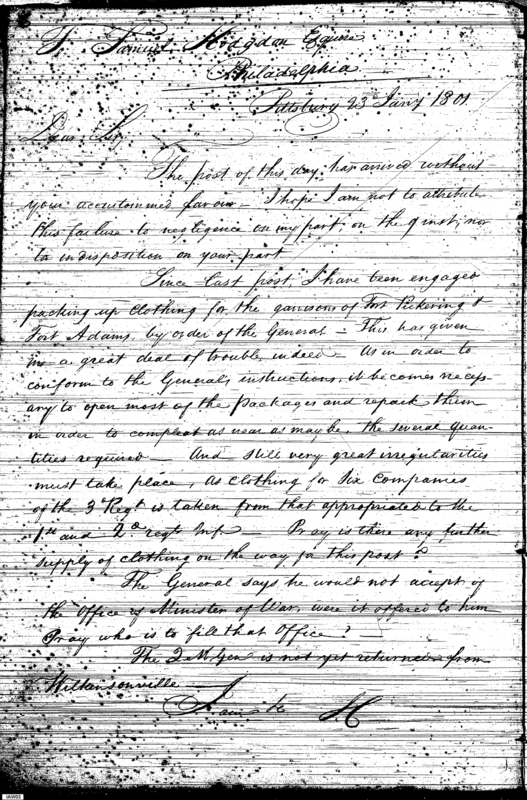 To Samuel Hodgdon Esquire
Philadelphia
Pittsburg 23d Jany 1801
Dear Sir,
The post of this day has arrived without
your accustommed favour - I hope I am not to attribute
this failure to negligence on my part, on the 9 inst, nor
to indisposition on your part
Since last post, I have been engaged
packing up clothing for the garrisons of Fort Pickering &
Fort Adams, by order of the General - This has given
me a great deal of trouble indeed - As in order to
conform to the General's instructions, it becomes necess-
ary to open most of the packages and repack them
in order to compleat as near as may be, the several quan-
tities required - And still very great irregularities
must take place, as clothing for Six companies
of the 3d Regt is taken from that appropriated to the
1st and 2d regts Inf. - Pray is there any further
supply of clothing on the way for this post?
The General says, he would not accept of
the Office of Minister of War, were it offered to him
Pray who is to fill that Office?
The Q M Gen is not yet returned from
Wilkinsonville
I am &c
IAW03